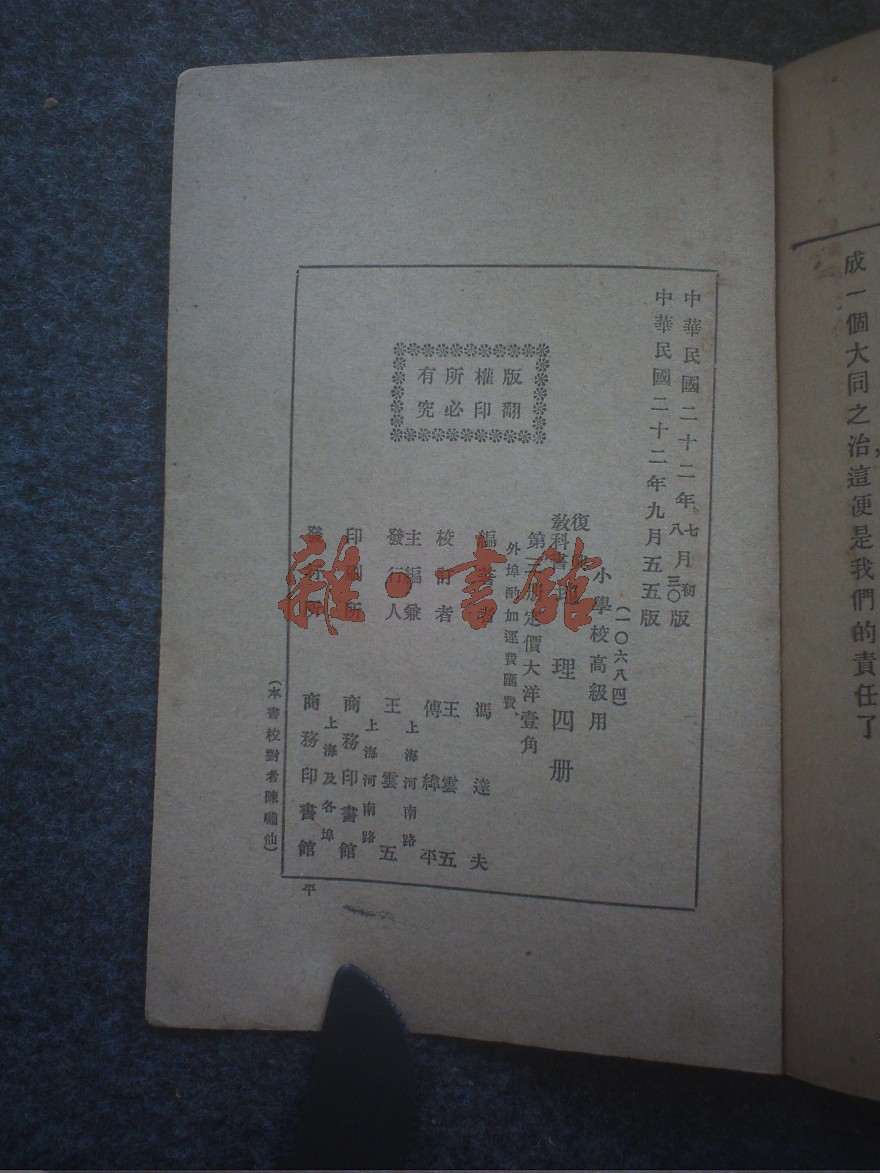 成一個大同之治這便是我們的責任了
中華民國二十二年七月初版
中華民國二十二年九月五五版
(一〇六八四)
小學校高級用
復
教科書 理四册
第三册定價大洋壹角
外埠酌加運費匯費
版權所有
翻印必究
編著者 馮達夫
校訂者 王雲五
傅緯平
上海河南路
主編兼
發行人 王雲五
上海河南路
印刷所 商務印書館
上海及各埠
發行所 商務印書館
(本書校對者陳嘯仙)
平
雜·書館